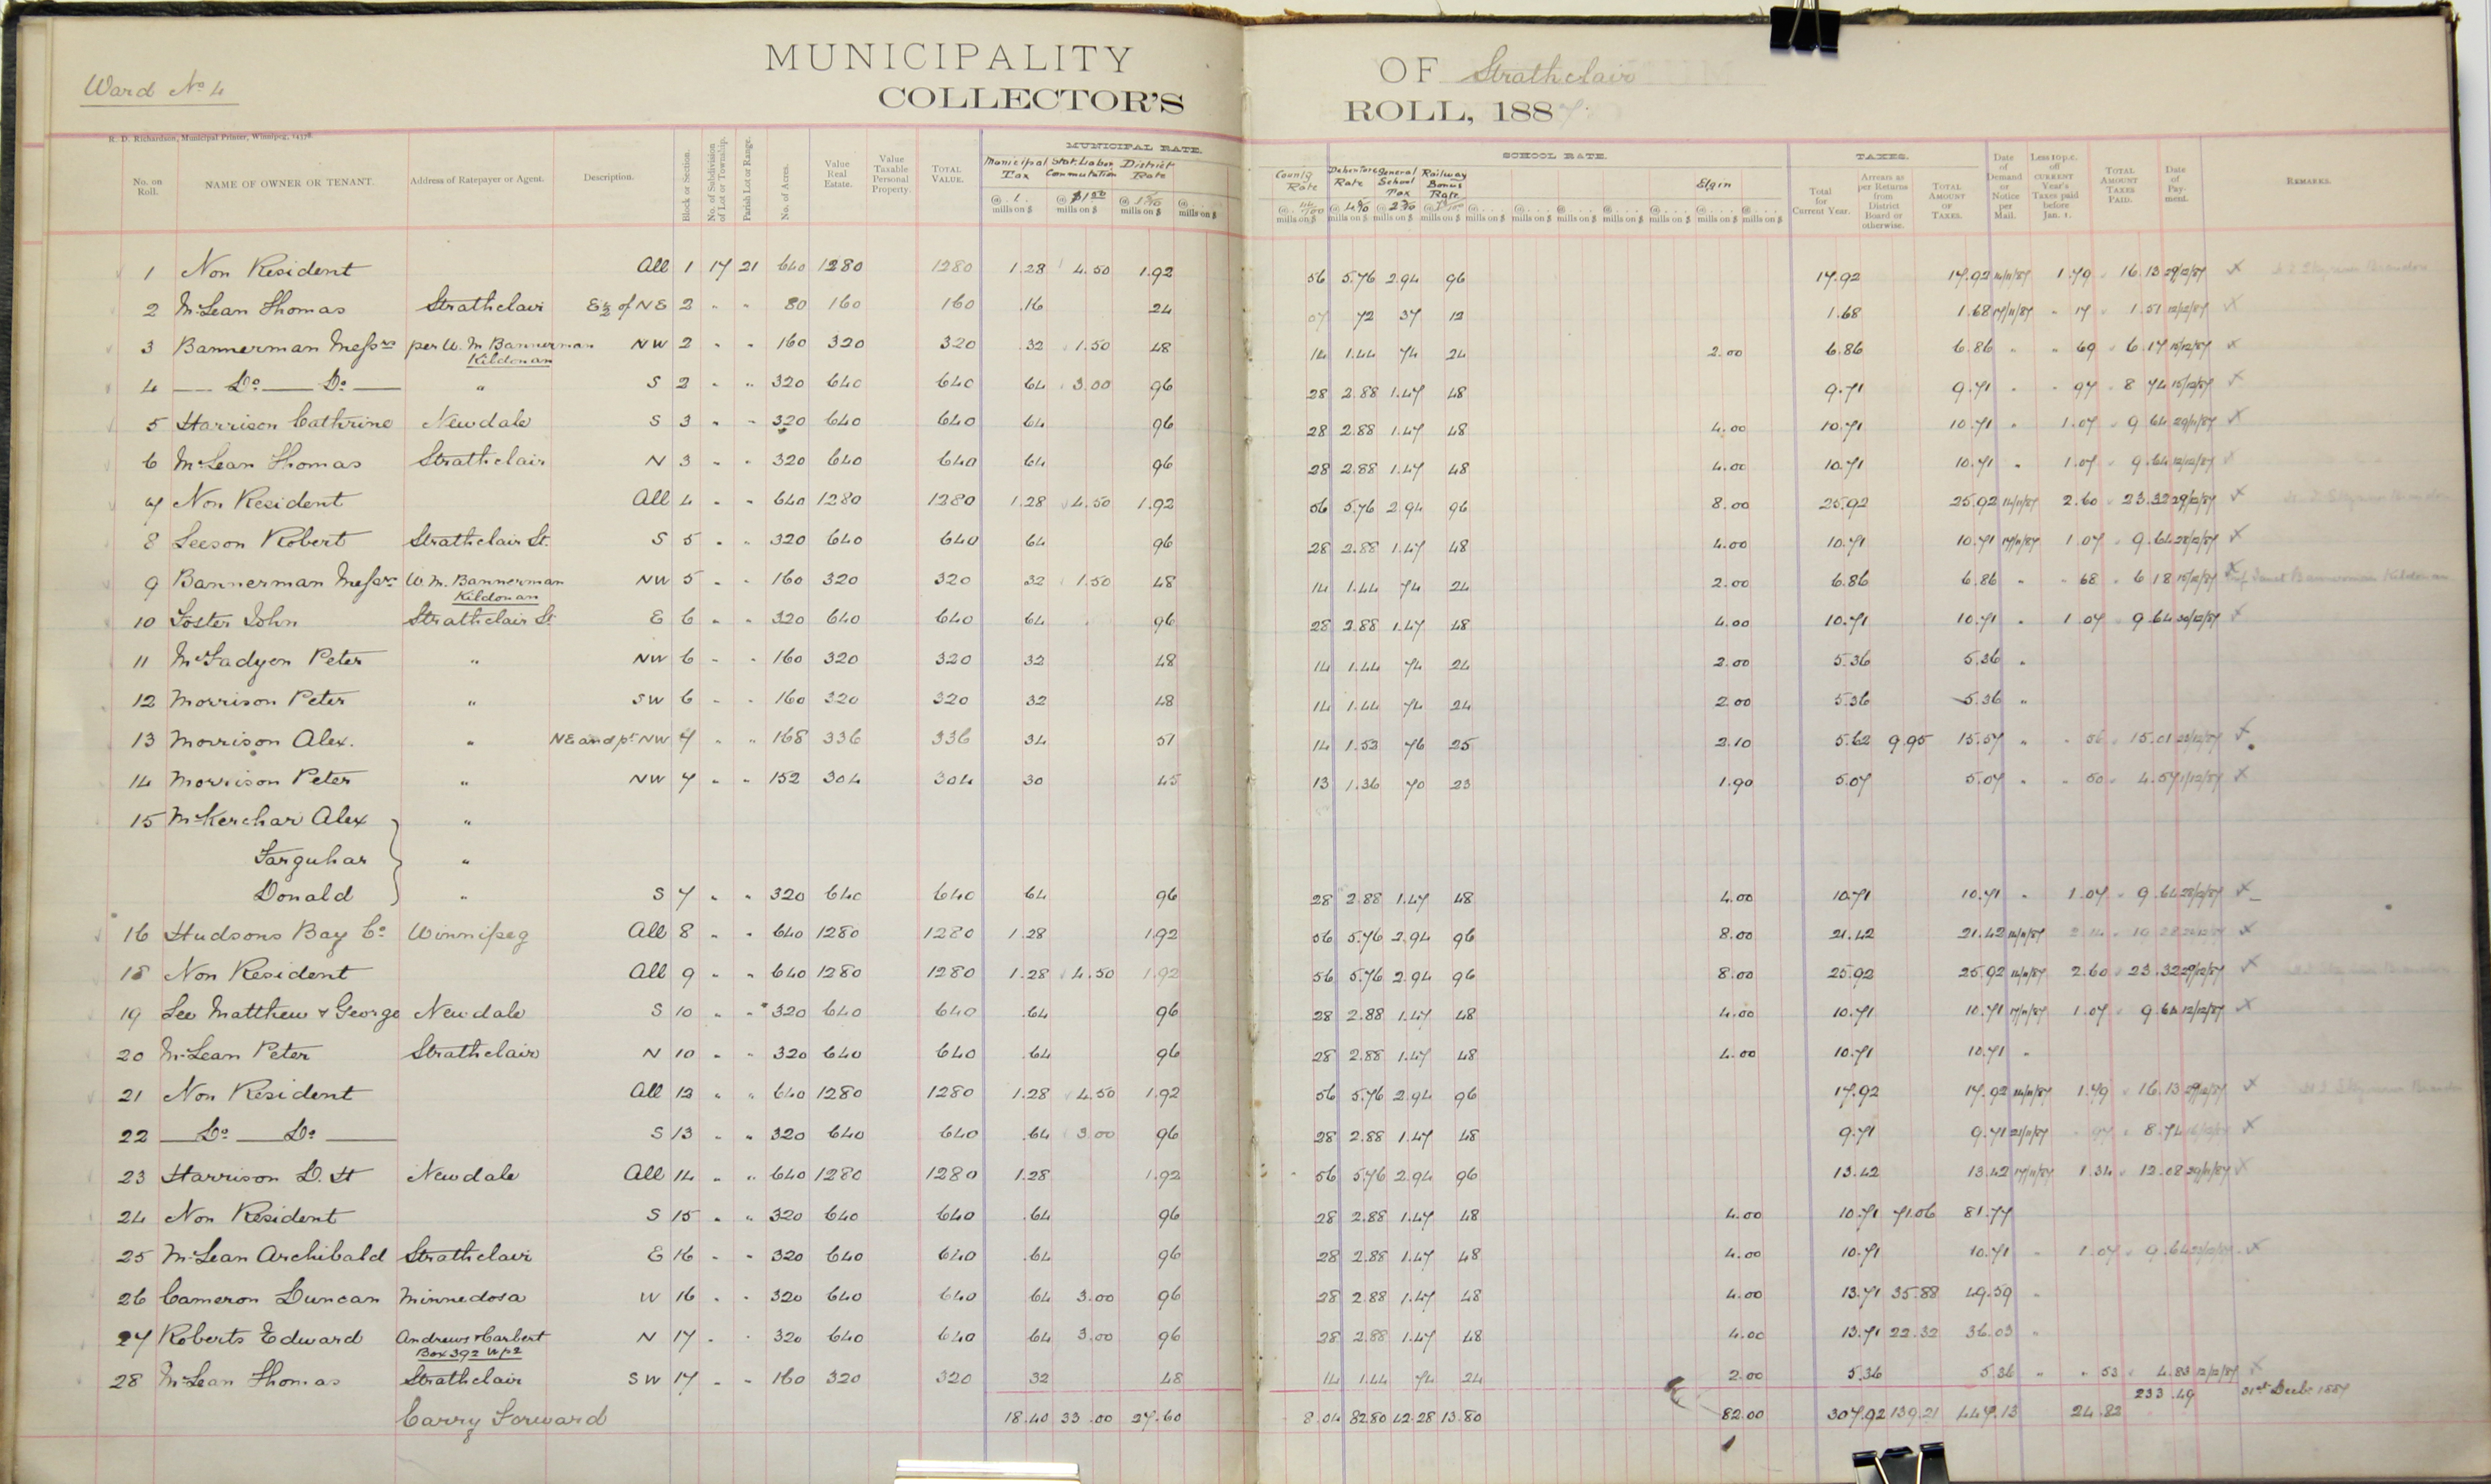 Ward No 4
MUNICIPALITY OF Strathclair
COLLECTOR'S ROLL, 1887
R. D. Richardson, Municipal Printer, Winnipeg,
No. on Roll. NAME OF OWNER OR TENANT. Address of Ratepayer or Agent. Description. Block or Section. No. of Subdivision of Lot or Township. Parish Lot or Range. No. of Acres. Value Real Estate. Value Taxable Personal Property. TOTAL VALUE. MUNICIPAL RATE. Municipal Tax Stat. Labor Commutation District Rate
@ 1. mills on $ @ $1.50 mills on $ @ 1 5/10 mills on $ @ mills on $
County Rate Debenture Rate General School Tax Railway Bonus Rate SCHOOL RATE. Elgin TAXES. Total for Current Year. Arrears as per Returns from District Board or otherwise. TOTAL AMOUNT OF TAXES. Date of Demand or Notice per Mail. Less 10 p.c. off CURRENT Year's Taxes paid before Jan. 1. TOTAL AMOUNT TAXES PAID. Date of Payment. REMARKS.
1 Non Resident All 1 17 21 640 1280 1280 1.28 4.50 1.92 56 5.76 2.94 96 17.92 17.92 14/11/87 1.79 16.13 29/12/87 x
2 McLean Thomas Strathclair E½ of NE 2 " " 80 160 160 .16 24 07 72 37 12 1.68 1.68 17/11/87 " 17 1.51 12/12/87 x
3 Bannerman Messrs per W. M Bannerman NW 2 " " 160 320 320 .32 1.50 48 14 1.44 74 24 2.00 6.86 6.86 " " 69 6.17 15/12/87 x
Kildonan
4 — Do — Do — " S 2 " " 320 640 640 64 3.00 96 28 2.88 1.47 48 9.71 9.71 " " 97 8 74 15/12/87 x
5 Harrison Cathrine Newdale S 3 " " 320 640 640 64 96 28 2.88 1.47 48 4.00 10.71 10.71 " 1.07 9 64 29/11/87 x
6 McLean Thomas Strathclair N 3 " " 320 640 640 64 96 28 2.88 1.47 48 4.00 10.71 10.71 " 1.07 9.64 12/12/87 x
7 Non Resident All 4 " " 640 1280 1280 1.28 4.50 1.92 56 5.76 2.94 96 8.00 25.92 25.92 14/11/87 2.60 23.32 29/12/87 x
8 Leeson Robert Strathclair St. S 5 " " 320 640 640 64 96 28 2.88 1.47 48 4.00 10.71 10.71 17/11/87 1.07 9.64 28/12/87 x
9 Bannerman Messrs W. M. Bannerman NW 5 " " 160 320 320 32 1.50 48 14 1.44 74 24 2.00 6.86 6.86 " " 68 6 18 15/12/87 x Bannerman Kildonan
Kildonan
10 Foster John Strathclair St E 6 " " 320 640 640 64 96 28 2.88 1.47 48 4.00 10.71 10.71 " 1.07 9.64 30/12/87 x
11 McFadyen Peter " NW 6 " " 160 320 320 32 48 14 1.44 74 24 2.00 5.36 5.36 "
12 Morrison Peter " SW 6 " " 160 320 320 32 48 14 1.44 74 24 2.00 5.36 5.36 "
13 Morrison Alex. " NE and pt NW 7 " " 168 336 336 34 51 14 1.52 76 25 2.10 5.62 9.95 15.57 " " 56 15.01 x
14 Morrison Peter " NW 7 " " 152 304 304 30 45 13 1.36 70 23 1.90 5.07 5.07 " " 50 4.57 1/12/87 x
15 McKerchar Alex "
Farquhar "
Donald " S 7 " " 320 640 640 64 96 28 2.88 1.47 48 4.00 10.71 10.71 " 1.07 9.64 28/12/87 x
16 Hudsons Bay Co Winnipeg All 8 " " 640 1280 1280 1.28 1.92 56 5.76 2.94 96 8.00 21.42 21.42 14/11/87 2.14 19 28 x
18 Non Resident All 9 " " 640 1280 1280 1.28 4.50 1.92 56 5.76 2.94 96 8.00 25.92 25.92 14/11/87 2.60 23.32 29/12/87 x
19 Lee Matthew & George Newdale S 10 " " 320 640 640 .64 96 28 2.88 1.47 48 4.00 10.71 10.71 17/11/87 1.07 9.64 12/12/87 x
20 McLean Peter Strathclair N 10 " " 320 640 640 .64 96 28 2.88 1.47 48 4.00 10.71 10.71 "
21 Non Resident All 12 " " 640 1280 1280 1.28 4.50 1.92 56 5.76 2.94 96 17.92 17.92 14/11/87 1.79 16.13 29/12/87 x
22 — Do — Do — S 13 " " 320 640 640 .64 3.00 96 28 2.88 1.47 48 9.71 9.71 21/11/87 " 97 8.74 x
23 Harrison D. H Newdale All 14 " " 640 1280 1280 1.28 1.92 56 5.76 2.94 96 13.42 13.42 17/11/87 1.34 12.08 29/11/87 x
24 Non Resident S 15 " " 320 640 640 .64 96 28 2.88 1.47 48 4.00 10.71 71.06 81.77
25 McLean Archibald Strathclair E 16 " " 320 640 640 .64 96 28 2.88 1.47 48 4.00 10.71 10.71 " 1.07 9.64 x
26 Cameron Duncan Minnedosa W 16 " " 320 640 640 64 3.00 96 28 2.88 1.47 48 4.00 13.71 35.88 49.59 "
27 Roberts Edward Andrews & Carbert N 17 " " 320 640 640 64 3.00 96 28 2.88 1.47 48 4.00 13.71 22.32 36.03 "
Box 392 Wpg
28 McLean Thomas Strathclair SW 17 " " 160 320 320 32 48 14 1.44 74 24 2.00 5.36 5.36 " " 53 4.83 12/12/87 x
233.49 31st Decbr 1887
Carry Forward 18.40 33.00 27.60 8.04 82.80 42.28 13.80 82.00 307.92 139.21 447.13 24.82